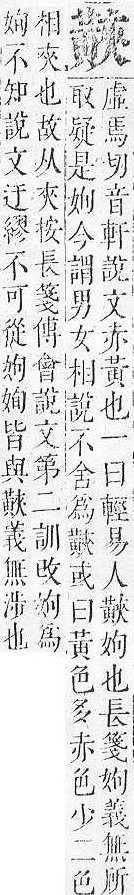 䵎
虛焉切音軒說文赤黃也一曰輕易人䵎姁也長箋姁義無所
取疑是姰今謂男女相說不舍為䵎或曰黃色多赤色少二色
相夾也故从夾按長箋傅會說文第二訓改姁為
姰不知說文迂繆不可從姁姰皆與䵎義無涉也